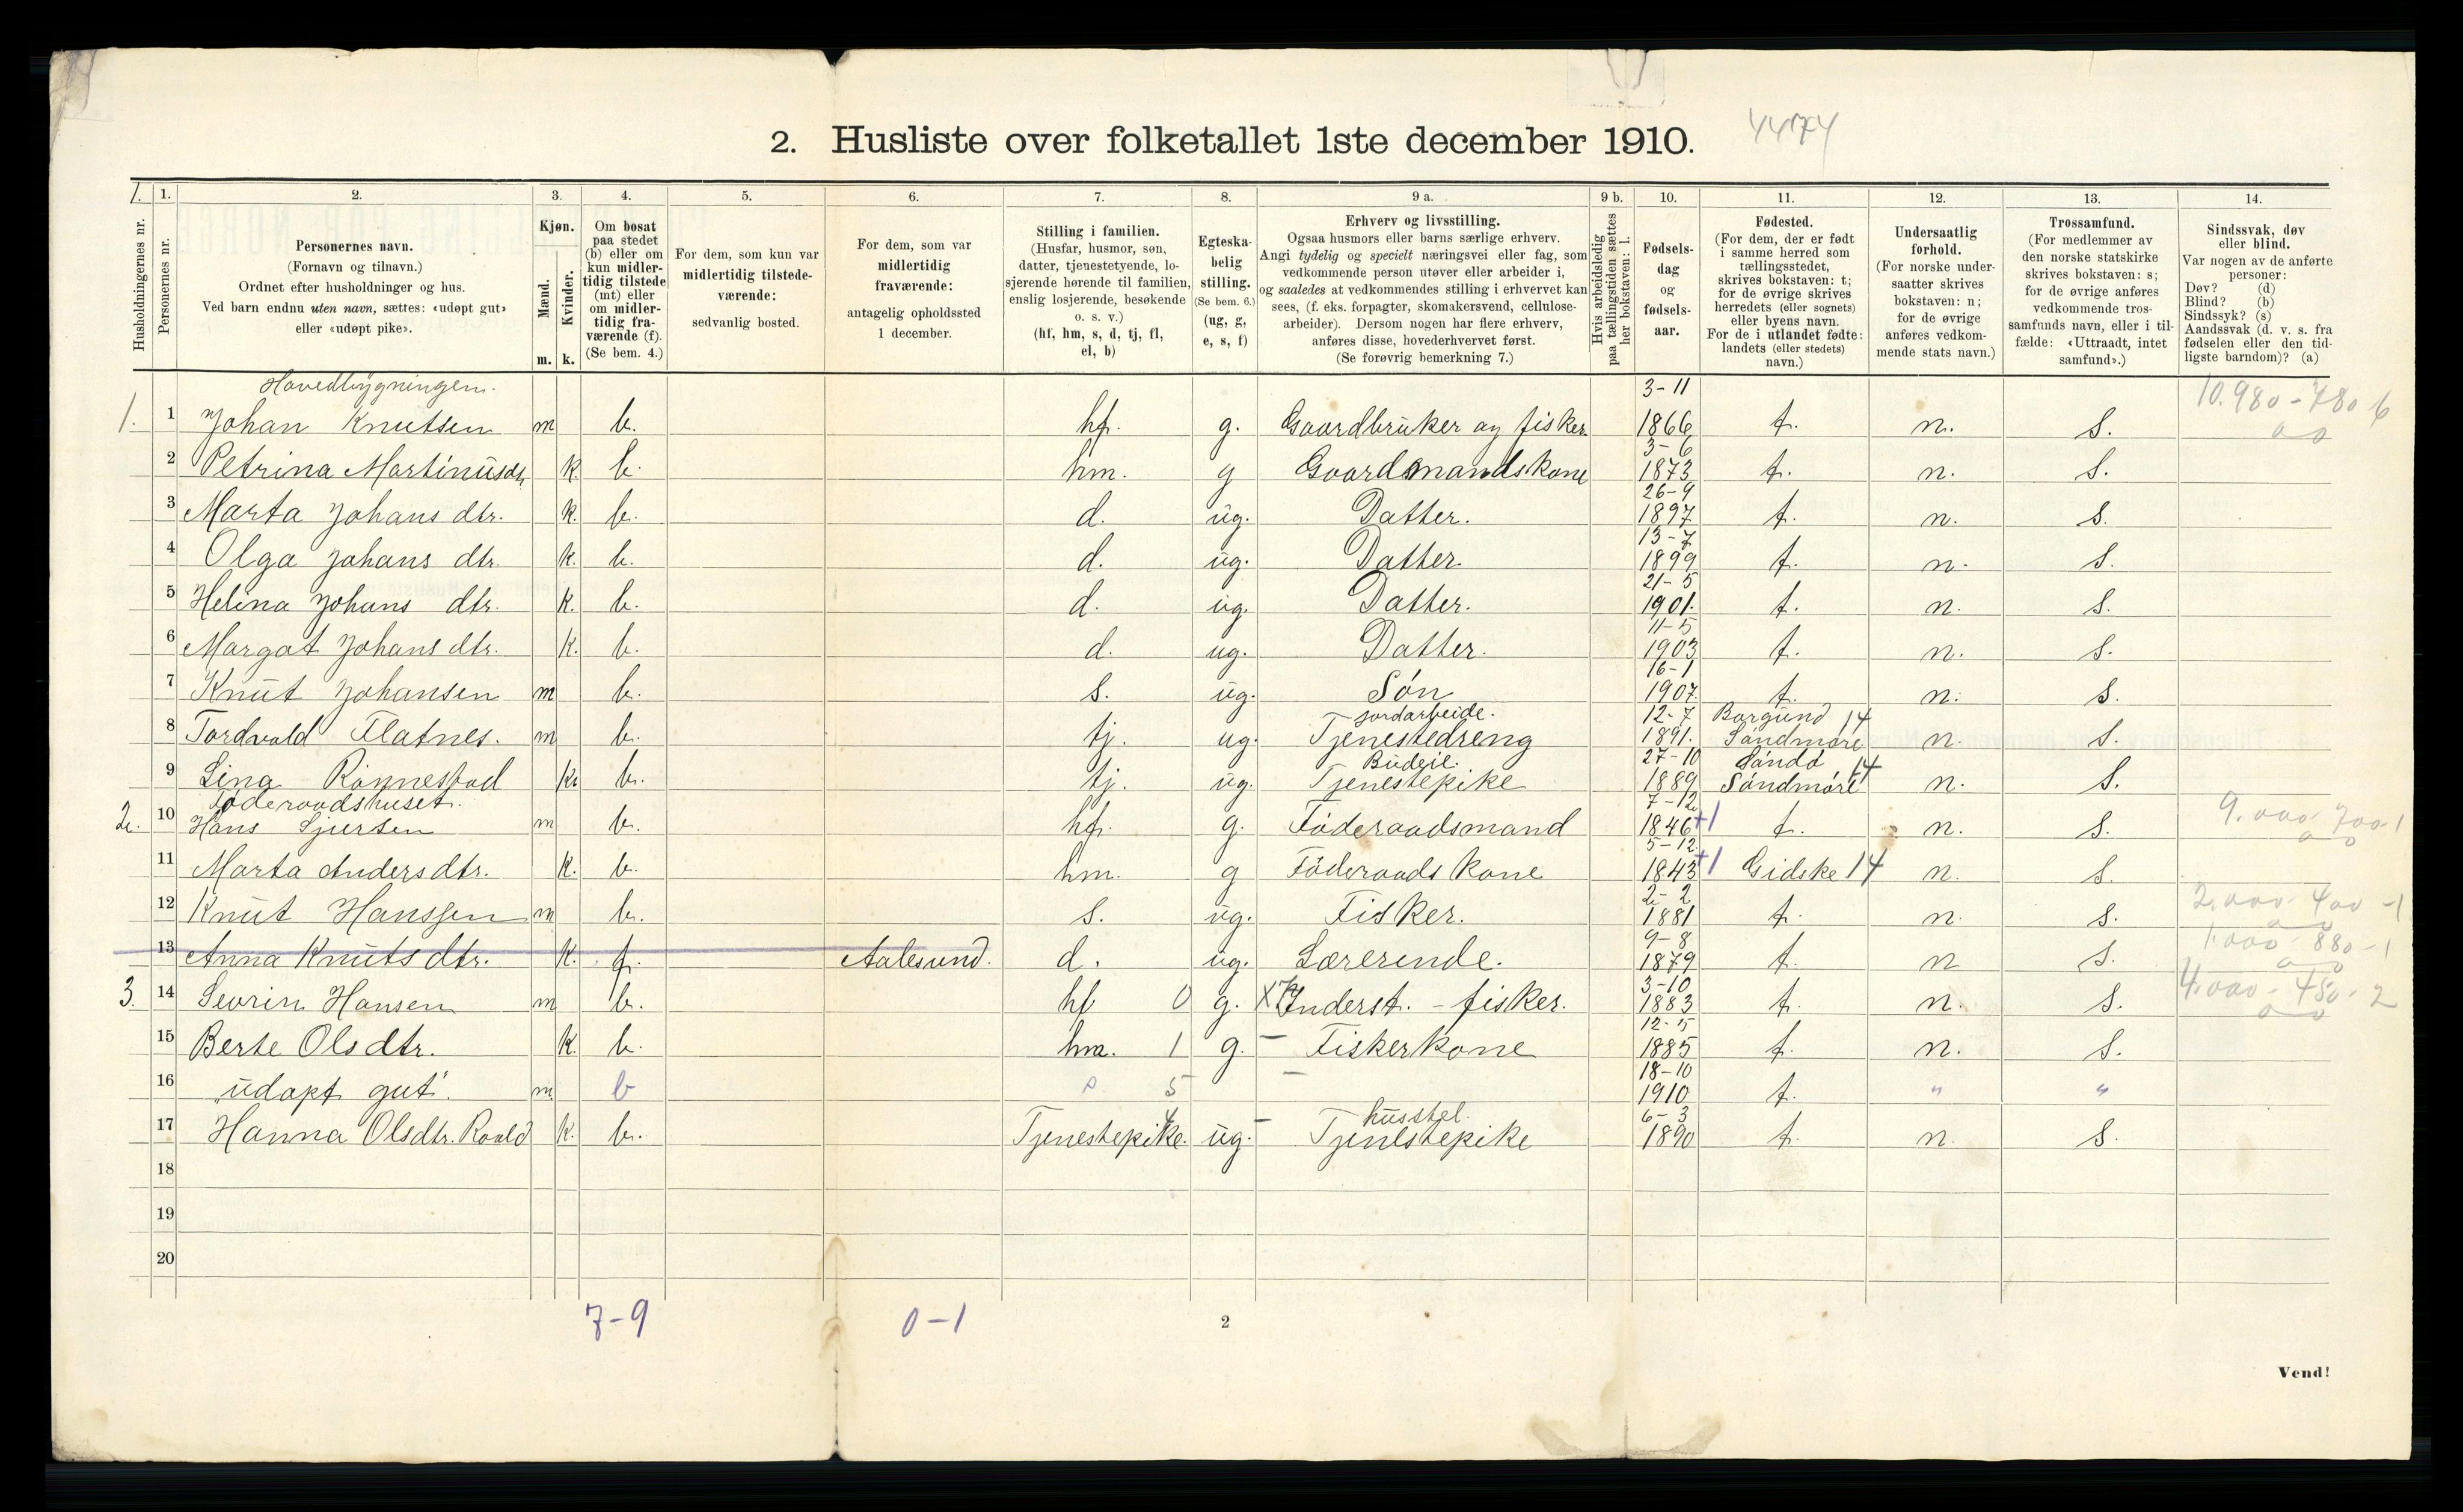 2. Husliste over folketallet 1ste december 1910.
1. 1. 2. 3. 4. 5. 6. 7. 8. 9 a. 9 b. 10. 11. 12. 13. 14.
Husholdningernes nr.
Personernes nr.
Personernes navn.
(Fornavn og tilnavn.)
Ordnet efter husholdninger og hus.
Ved barn endnu uten navn, sættes: «udøpt gut»
eller «udøpt pike».
Kjøn.
Mænd.
Kvinder.
m. k.
Om bosat
paa stedet
(b) eller om
kun midler-
tidig tilstede
(mt) eller
om midler-
tidig fra-
værende (f).
(Se bem. 4.)
For dem, som kun var
midlertidig tilstede-
værende:
sedvanlig bosted.
For dem, som var
midlertidig
fraværende:
antagelig opholdssted
1 december.
Stilling i familien.
(Husfar, husmor, søn,
datter, tjenestetyende, lo-
sjerende hørende til familien,
enslig losjerende, besøkende
o. s. v.)
(hf, hm, s, d, tj, fl,
el, b)
Egteska-
belig
stilling.
(Se bem. 6.)
(ug, g,
e, s, f)
Erhverv og livsstilling.
Ogsaa husmors eller barns særlige erhverv.
Angi tydelig og specielt næringsvei eller fag, som
vedkommende person utøver eller arbeider i,
og saaledes at vedkommendes stilling i erhvervet kan
sees, (f. eks. forpagter, skomakersvend, cellulose-
arbeider). Dersom nogen har flere erhverv,
anføres disse, hovederhvervet først.
(Se forøvrig bemerkning 7.)
Hvis arbeidsledig
paa tællingstiden sættes
her bokstaven: l.
Fødsels-
dag
og
fødsels-
aar.
Fødested.
(For dem, der er født
i samme herred som
tællingsstedet,
skrives bokstaven: t;
for de øvrige skrives
herredets (eller sognets)
eller byens navn.
For de i utlandet fødte:
landets (eller stedets)
navn.)
Undersaatlig
forhold.
(For norske under-
saatter skrives
bokstaven: n;
for de øvrige
anføres vedkom-
mende stats navn.)
Trossamfund.
(For medlemmer av
den norske statskirke
skrives bokstaven: s;
for de øvrige anføres
vedkommende tros-
samfunds navn, eller i til-
fælde: «Uttraadt, intet
samfund».)
Sindssvak, døv
eller blind.
Var nogen av de anførte
personer:
Døv? (d)
Blind? (b)
Sindssyk? (s)
Aandssvak (d. v. s. fra
fødselen eller den tid-
ligste barndom)? (a)
Hovedbygningen.
1. 1 Johan Knutsen m b. hf. g. Gaardbruker og fisker 3-11 1866 t. n. S. 10.980-780 6
2 Petrina Martinusdtr k. b. hm. g Gaardsmandskone 3-6 1873 t. n. S.
3 Marta Johans dtr. k. b. d. ug. Datter. 26-9 1897 t. n. S.
4 Olga Johans dtr. k. b. d. ug. Datter 13-7 1899 t. n. S.
5 Helina Johans dtr. k. b. d. ug. Datter. 21-5 1901. t. n. S.
6 Margot Johans dtr. k. b. d. ug. Datter. 11-5 1903 t. n. S.
7 Knut Johansen m b. s. ug. Søn 16-1 1907 t. n. S.
8 Tordvald Flatnes. m b. tj. ug. jordarbeide. Tjenestedreng 12-7 1891. Borgund 14 Søndmøre n. S.
9 Lina Rønnestad k. b. tj. ug. Budeie. Tjenestepike 27-10 1889 Sandø 14 Søndmøre n. S.
Føderaadshuset.
2. 10 Hans Sjursen m b. hf. g. Føderaadsmand 7-12 1846 +1 t. n. S. 9.000 700-1
11 Marta Andersdtr. k. b. hm. g Føderaads kone 5-12 1843 +1 Gidske 14 n. S.
12 Knut Hanssen m b. s. ug. Fisker. 2-2 1881 t. n. S. 2.000 400-1
13 Anna Knutsdtr. k. f. Aalesund. d. ug. Lærerinde. 9-8 1879 t. n S. 1.000 880-1
3. 14 Sevrin Hansen m b. hf 0 g. Inderst. - fisker. 3-10 1883 t. n. S. 4.000-450-2
15 Berte Olsdtr. k. b. hm. 1 g. - Fiskerkone 12-5 1885 t. n. S.
16 „udøpt gut". m b s 5 - 18-10 1910 t. " "
17 Hanna Olsdtr. Roald k. b. Tjenestepike. ug. - husstel. Tjenestepike 6-3 1890 t. n. S.
18
19
20
7-9 0-1
2
Vend!